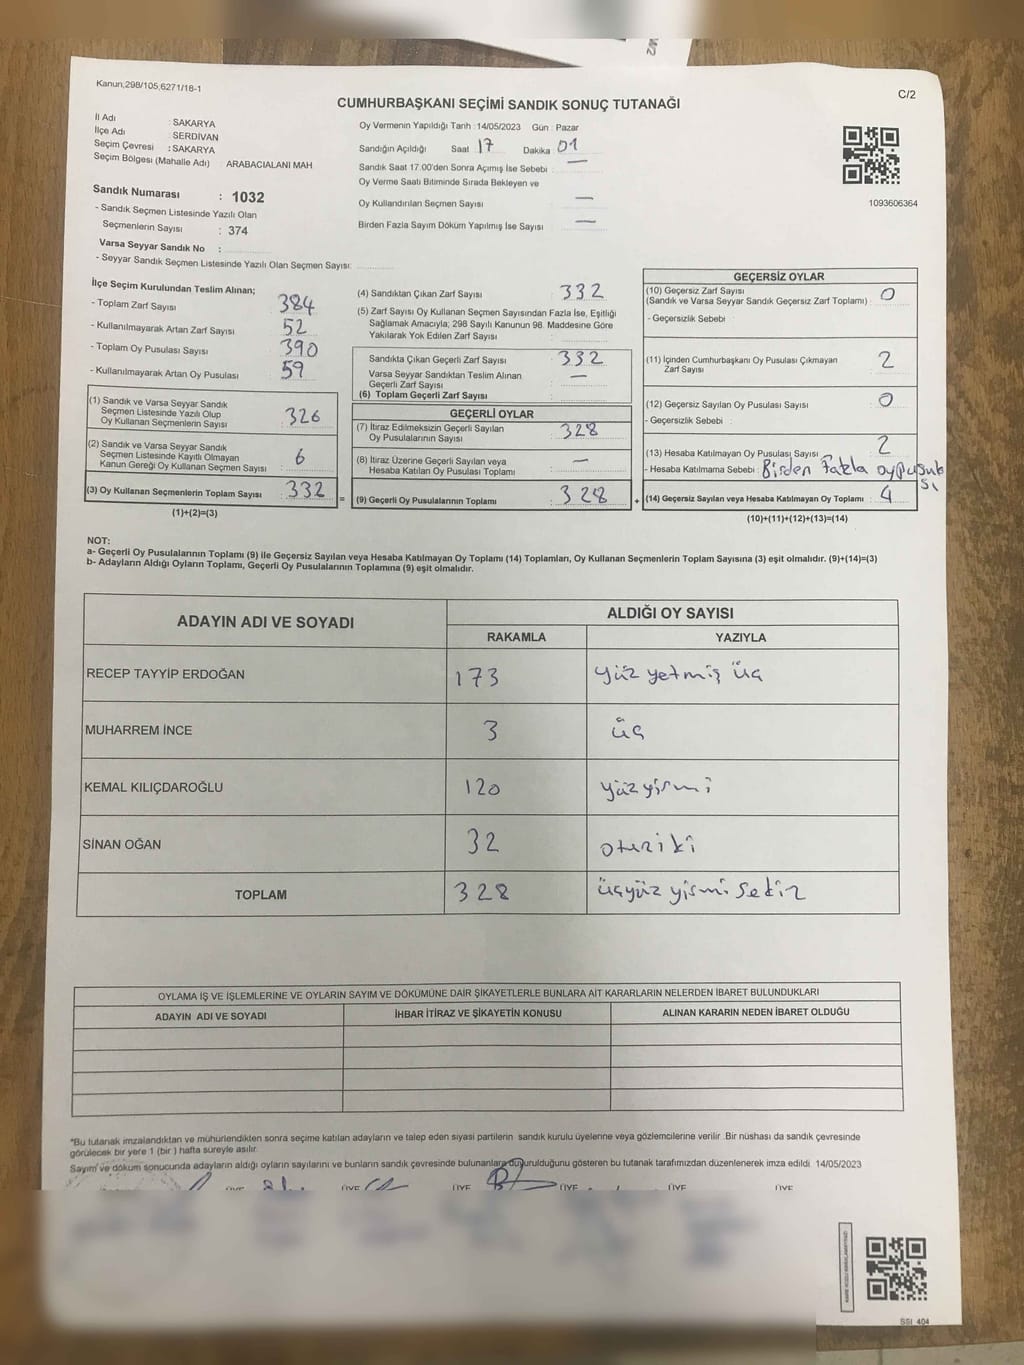 Kanun,298/105,6271/18-1
C/2
CUMHURBAŞKANI SEÇİMİ SANDIK SONUÇ TUTANAĞI
İl Adı : SAKARYA
İlçe Adı : SERDİVAN
Seçim Çevresi : SAKARYA
Seçim Bölgesi (Mahalle Adı) : ARABACIALANI MAH
Sandık Numarası : 1032
- Sandık Seçmen Listesinde Yazılı Olan
Seçmenlerin Sayısı : 374
Varsa Seyyar Sandık No :
- Seyyar Sandık Seçmen Listesinde Yazılı Olan Seçmen Sayısı:
Oy Vermenin Yapıldığı Tarih : 14/05/2023 Gün : Pazar
Sandığın Açıldığı Saat 17 Dakika 01
Sandık Saat 17:00'den Sonra Açımış İse Sebebi : —
Oy Verme Saati Bitiminde Sırada Bekleyen ve
Oy Kullandırılan Seçmen Sayısı —
Birden Fazla Sayım Döküm Yapılmış İse Sayısı —
1093606364
İlçe Seçim Kurulundan Teslim Alınan;
- Toplam Zarf Sayısı 384
- Kullanılmayarak Artan Zarf Sayısı : 52
- Toplam Oy Pusulası Sayısı : 390
- Kullanılmayarak Artan Oy Pusulası : 59
(1) Sandık ve Varsa Seyyar Sandık
Seçmen Listesinde Yazılı Olup
Oy Kullanan Seçmenlerin Sayısı : 326
(2) Sandık ve Varsa Seyyar Sandık
Seçmen Listesinde Kayıtlı Olmayan
Kanun Gereği Oy Kullanan Seçmen Sayısı : 6
(3) Oy Kullanan Seçmenlerin Toplam Sayısı : 332
(1)+(2)=(3)
=
(4) Sandıktan Çıkan Zarf Sayısı : 332
(5) Zarf Sayısı Oy Kullanan Seçmen Sayısından Fazla İse, Eşitliği
Sağlamak Amacıyla; 298 Sayılı Kanunun 98. Maddesine Göre
Yakılarak Yok Edilen Zarf Sayısı :
Sandıkta Çıkan Geçerli Zarf Sayısı : 332
Varsa Seyyar Sandıktan Teslim Alınan
Geçerli Zarf Sayısı : —
(6) Toplam Geçerli Zarf Sayısı :
GEÇERLİ OYLAR
(7) İtiraz Edilmeksizin Geçerli Sayılan
Oy Pusulalarının Sayısı : 328
(8) İtiraz Üzerine Geçerli Sayılan veya
Hesaba Katılan Oy Pusulası Toplamı : —
(9) Geçerli Oy Pusulalarının Toplamı : 328
+
GEÇERSİZ OYLAR
(10) Geçersiz Zarf Sayısı : 0
(Sandık ve Varsa Seyyar Sandık Geçersiz Zarf Toplamı)
- Geçersizlik Sebebi :
(11) İçinden Cumhurbaşkanı Oy Pusulası Çıkmayan
Zarf Sayısı : 2
(12) Geçersiz Sayılan Oy Pusulası Sayısı : 0
- Geçersizlik Sebebi :
(13) Hesaba Katılmayan Oy Pusulası Sayısı : 2
- Hesaba Katılmama Sebebi : Birden Fazla oypusula
sı
(14) Geçersiz Sayılan veya Hesaba Katılmayan Oy Toplamı : 4
(10)+(11)+(12)+(13)=(14)
NOT:
a- Geçerli Oy Pusulalarının Toplamı (9) ile Geçersiz Sayılan veya Hesaba Katılmayan Oy Toplamı (14) Toplamları, Oy Kullanan Seçmenlerin Toplam Sayısına (3) eşit olmalıdır. (9)+(14)=(3)
b- Adayların Aldığı Oyların Toplamı, Geçerli Oy Pusulalarının Toplamına (9) eşit olmalıdır.
ADAYIN ADI VE SOYADI
ALDIĞI OY SAYISI
RAKAMLA YAZIYLA
RECEP TAYYİP ERDOĞAN 173 yüz yetmiş üç
MUHARREM İNCE 3 üç
KEMAL KILIÇDAROĞLU 120 yüz yirmi
SİNAN OĞAN 32 otuz iki
TOPLAM 328 üçyüz yirmi sekiz
OYLAMA İŞ VE İŞLEMLERİNE VE OYLARIN SAYIM VE DÖKÜMÜNE DAİR ŞİKAYETLERLE BUNLARA AİT KARARLARIN NELERDEN İBARET BULUNDUKLARI
ADAYIN ADI VE SOYADI İHBAR İTİRAZ VE ŞİKAYETİN KONUSU ALINAN KARARIN NEDEN İBARET OLDUĞU
*Bu tutanak imzalandıktan ve mühürlendikten sonra seçime katılan adayların ve talep eden siyasi partilerin sandık kurulu üyelerine veya gözlemcilerine verilir. Bir nüshası da sandık çevresinde
görülecek bir yere 1 (bir) hafta süreyle asılır.
Sayım ve döküm sonucunda adayların aldığı oyların sayılarını ve bunların sandık çevresinde bulunanlara duyurulduğunu gösteren bu tutanak tarafımızdan düzenlenerek imza edildi. 14/05/2023
ÜYE ÜYE ÜYE ÜYE ÜYE ÜYE
SSI_404